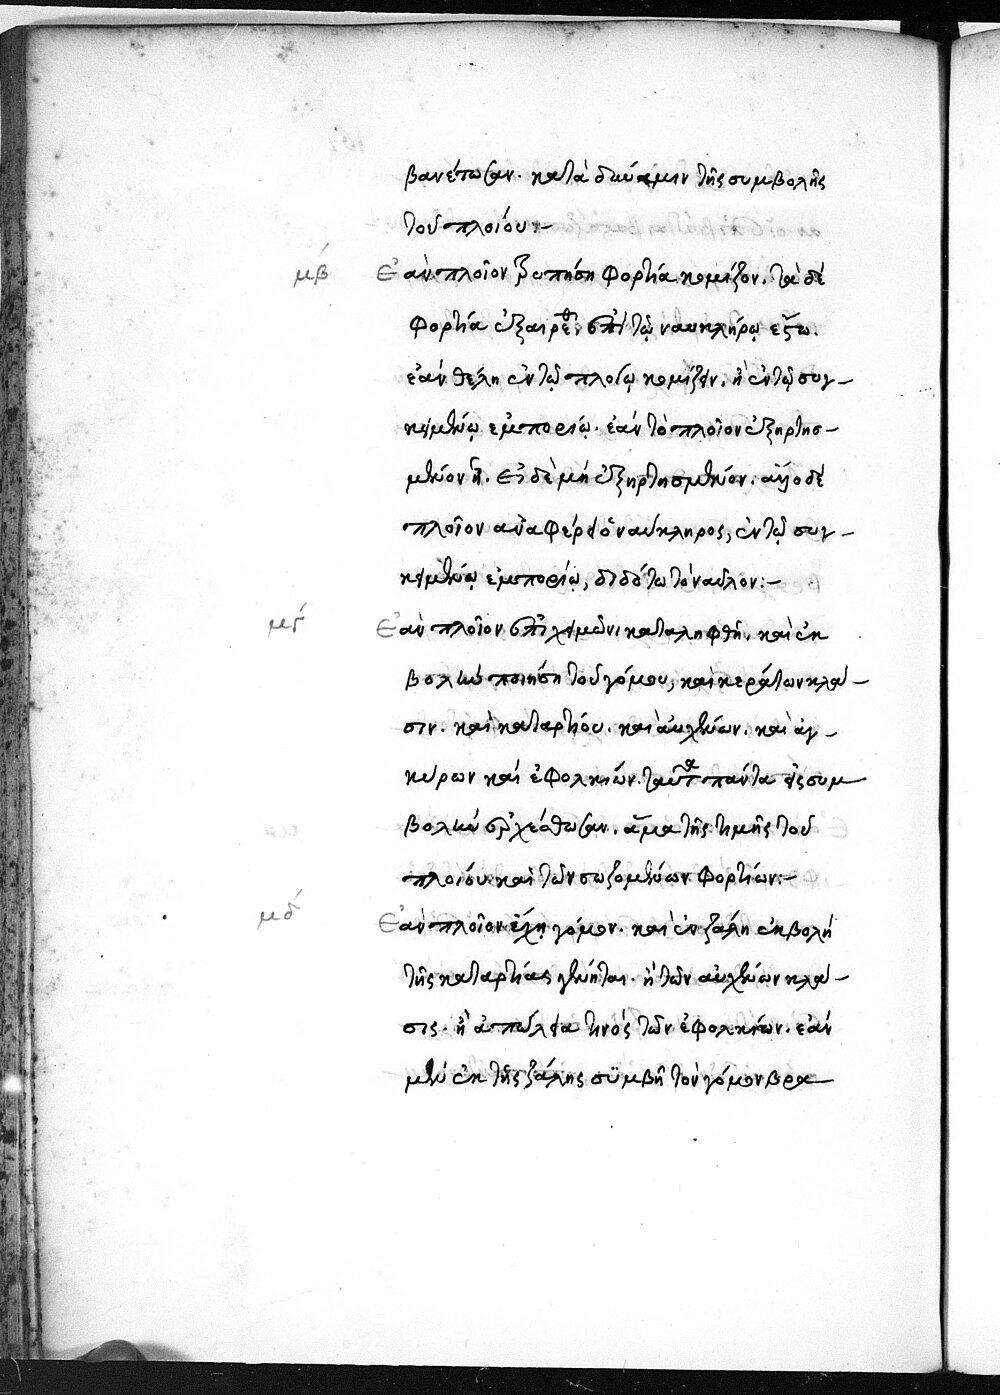 βανέτωσαν. κατὰ δύναμιν τῆς συμβολῆς
τοῦ πλοίου:-
μβ Ἐὰν πλοῖον τρυπήση φορτία κομίζον. τὰ δὲ
φορτία ἐξαιρεθῆ, ἐπὶ τῷ ναυκλήρῳ ἔστω.
ἐὰν θέλη ἐν τῷ πλοίῳ κομίζειν. ἢ ἐν τῷ συγ-
κειμένῳ ἐμπορίῳ. ἐὰν τὸ πλοῖον ἐξηρτισ-
μένον ἦ. εἰ δὲ μὴ ἐξηρτισμένον. ἄλλο δὲ
πλοῖον ἀναφέρει ὁ ναύκληρος, ἐν τῷ συγ-
κειμένῳ ἐμπορίῳ, διδότω τὸ ναῦλον:-
μγ Ἐὰν πλοῖον ἐπὶ χειμῶνι καταληφθῆ. καὶ ἐκ
βολὴν ποιήση τοῦ γόμου, καὶ κεράτων κλά-
σιν. καὶ καταρτίου. καὶ αὐχένων. καὶ ἀγ-
κύρων καὶ ἐφολκίων. ταῦτα πάντα εἰς συμ
βολὴν ἐρχέσθωσαν. ἅμα τῆς τιμῆς τοῦ
πλοίου καὶ τῶν σωζομένων φορτίων:-
μδ Ἐὰν πλοῖον ἔχη γόμον. καὶ ἐν ζάλη ἐκβολὴ
τῆς καταρτίας γένηται. ἢ τῶν αὐχένων κλά-
σις. ἢ ἀπώλεια τινὸς τῶν ἐφολκίων. ἐὰν
μὲν ἐκ τῆς ζάλης συμβῆ τὸν γόμον βρα-